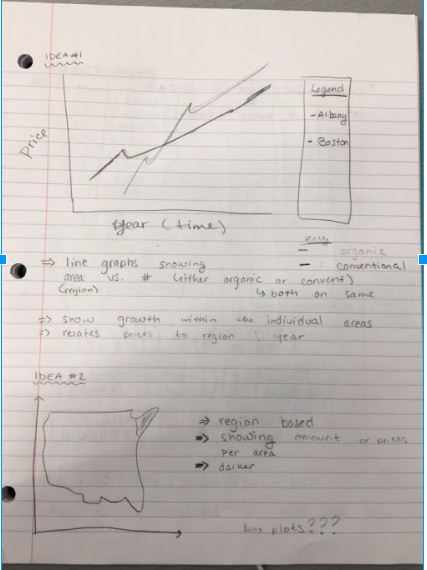 IDEA #1
Legend
- Albany
- Boston
Price
Year (time)
Key
- organic
- conventional
⇒ line graphs showing
area vs. # (either organic or convent)
(region)
↳ both on same
⇒ show growth within the individual areas
⇒ relates prices to region & year
IDEA #2
⇒ region based
⇒ showing amount or prices
per area
⇒ darker
box plots???